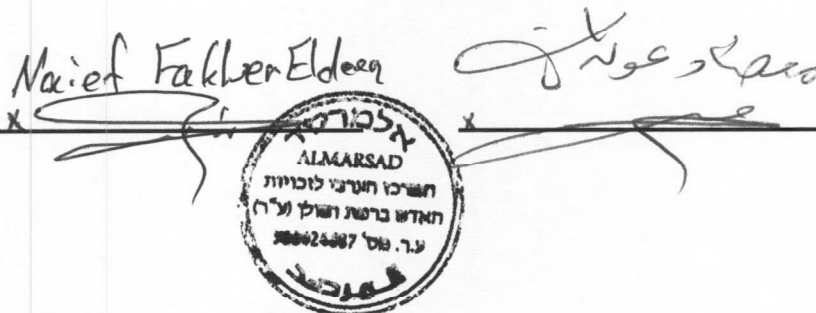 Naief FakherEldeen
x x
אלמרסד
ALMARSAD
המרכז הערבי לזכויות
האדם ברמת הגולן (ע"ר)
ע.ר. מס'
المرصد